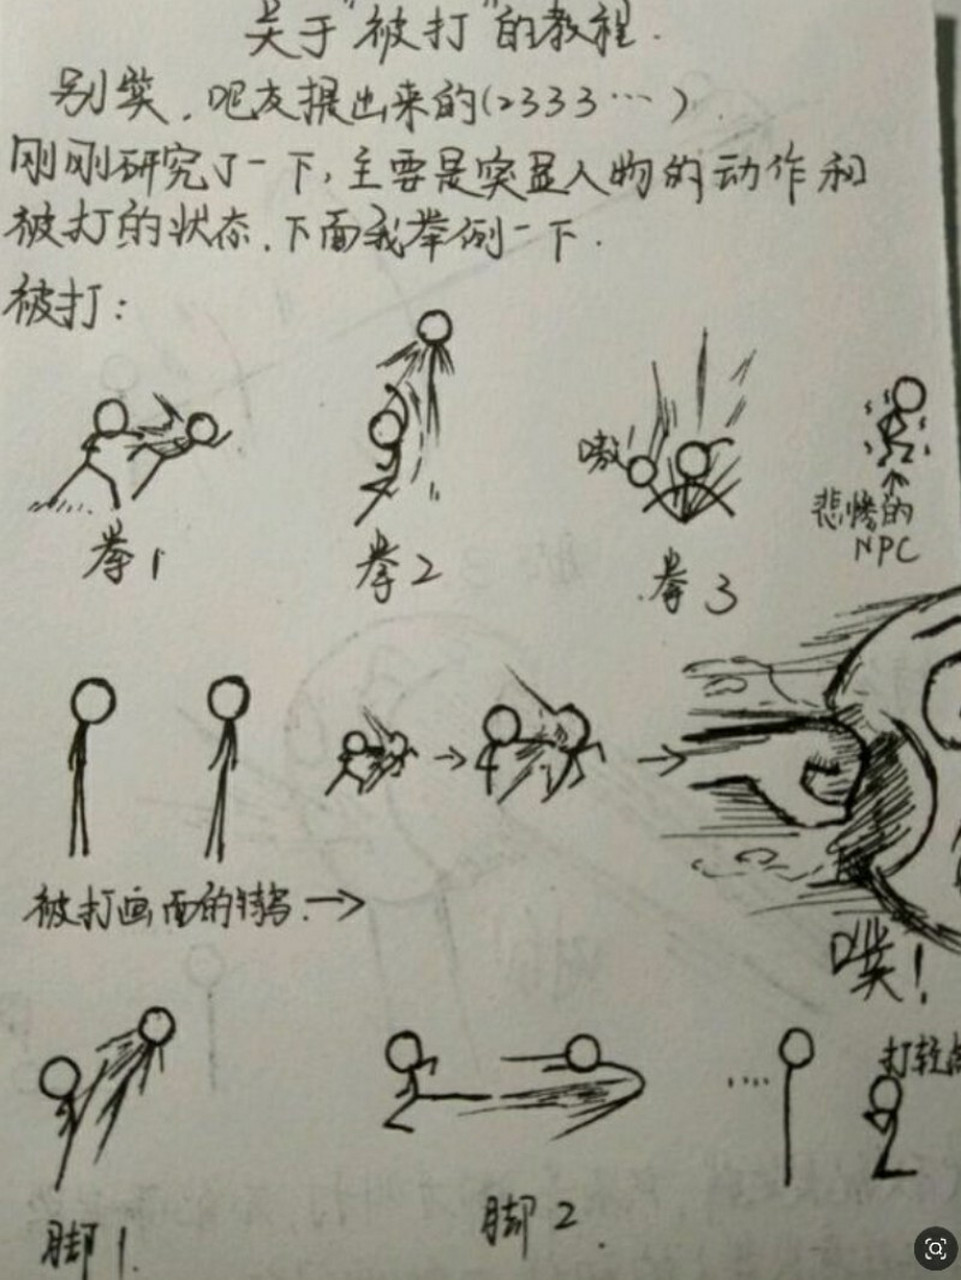 关于"被打"的教程.
别笑,吧友提出来的(2333…).
刚刚研究了一下,主要是突显人物的动作和
被打的状态,下面我举例一下.
被打:
嗷
悲惨的
NPC
拳1
拳2
拳3
被打画面的特写.→
噗!
打轻点
脚1.
脚2.